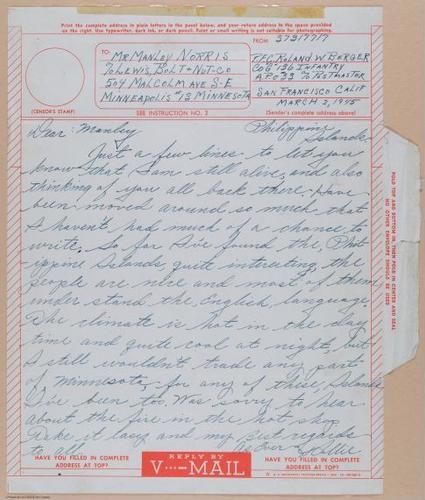 Print the complete address in plain letters in the panel below, and your return address in the space provided
on the right. Use typewriter, dark ink, or dark pencil. Faint or small writing is not suitable for photographing.
TO:
MR. MANLEY NORRIS
% LEWIS, BOLT-NUT-CO
504 MALCOLM AVE S-E
MINNEAPOLIS #13 MINNESOTA
FROM 37317717
T/4 ROLAND W BERGER
CO G 136 INFANTRY
A.P.O 33 % POSTMASTER
SAN FRANCISCO CALIF
MARCH 2, 1945
(CENSOR'S STAMP)
SEE INSTRUCTION NO. 2
(Sender's complete address above)
Dear Manley
Philippine
Islands
Just a few lines to let you
know that I am still alive, and also
thinking of you all back there. Have
been moved around so much that
I haven't had much of a chance to
write. So far I've found the Phil-
ippine Islands, quite interesting, the
people are nice and most of them
under stand the English language.
The climate is hot in the day
time and quite cool at nights, but
I still wouldn't trade any part
of Minnesota, for any of these Islands
I've been too. Was sorry to hear
about the fire in the hot shop
Take it easy and my best regards
to all.
As Ever
HAVE YOU FILLED IN COMPLETE
ADDRESS AT TOP?
REPLY BY
V···—MAIL
HAVE YOU FILLED IN COMPLETE
ADDRESS AT TOP?
FOLD TOP AND BOTTOM IN, THEN FOLD IN CENTER AND SEAL
NO OTHER ENVELOPE SHOULD BE USED